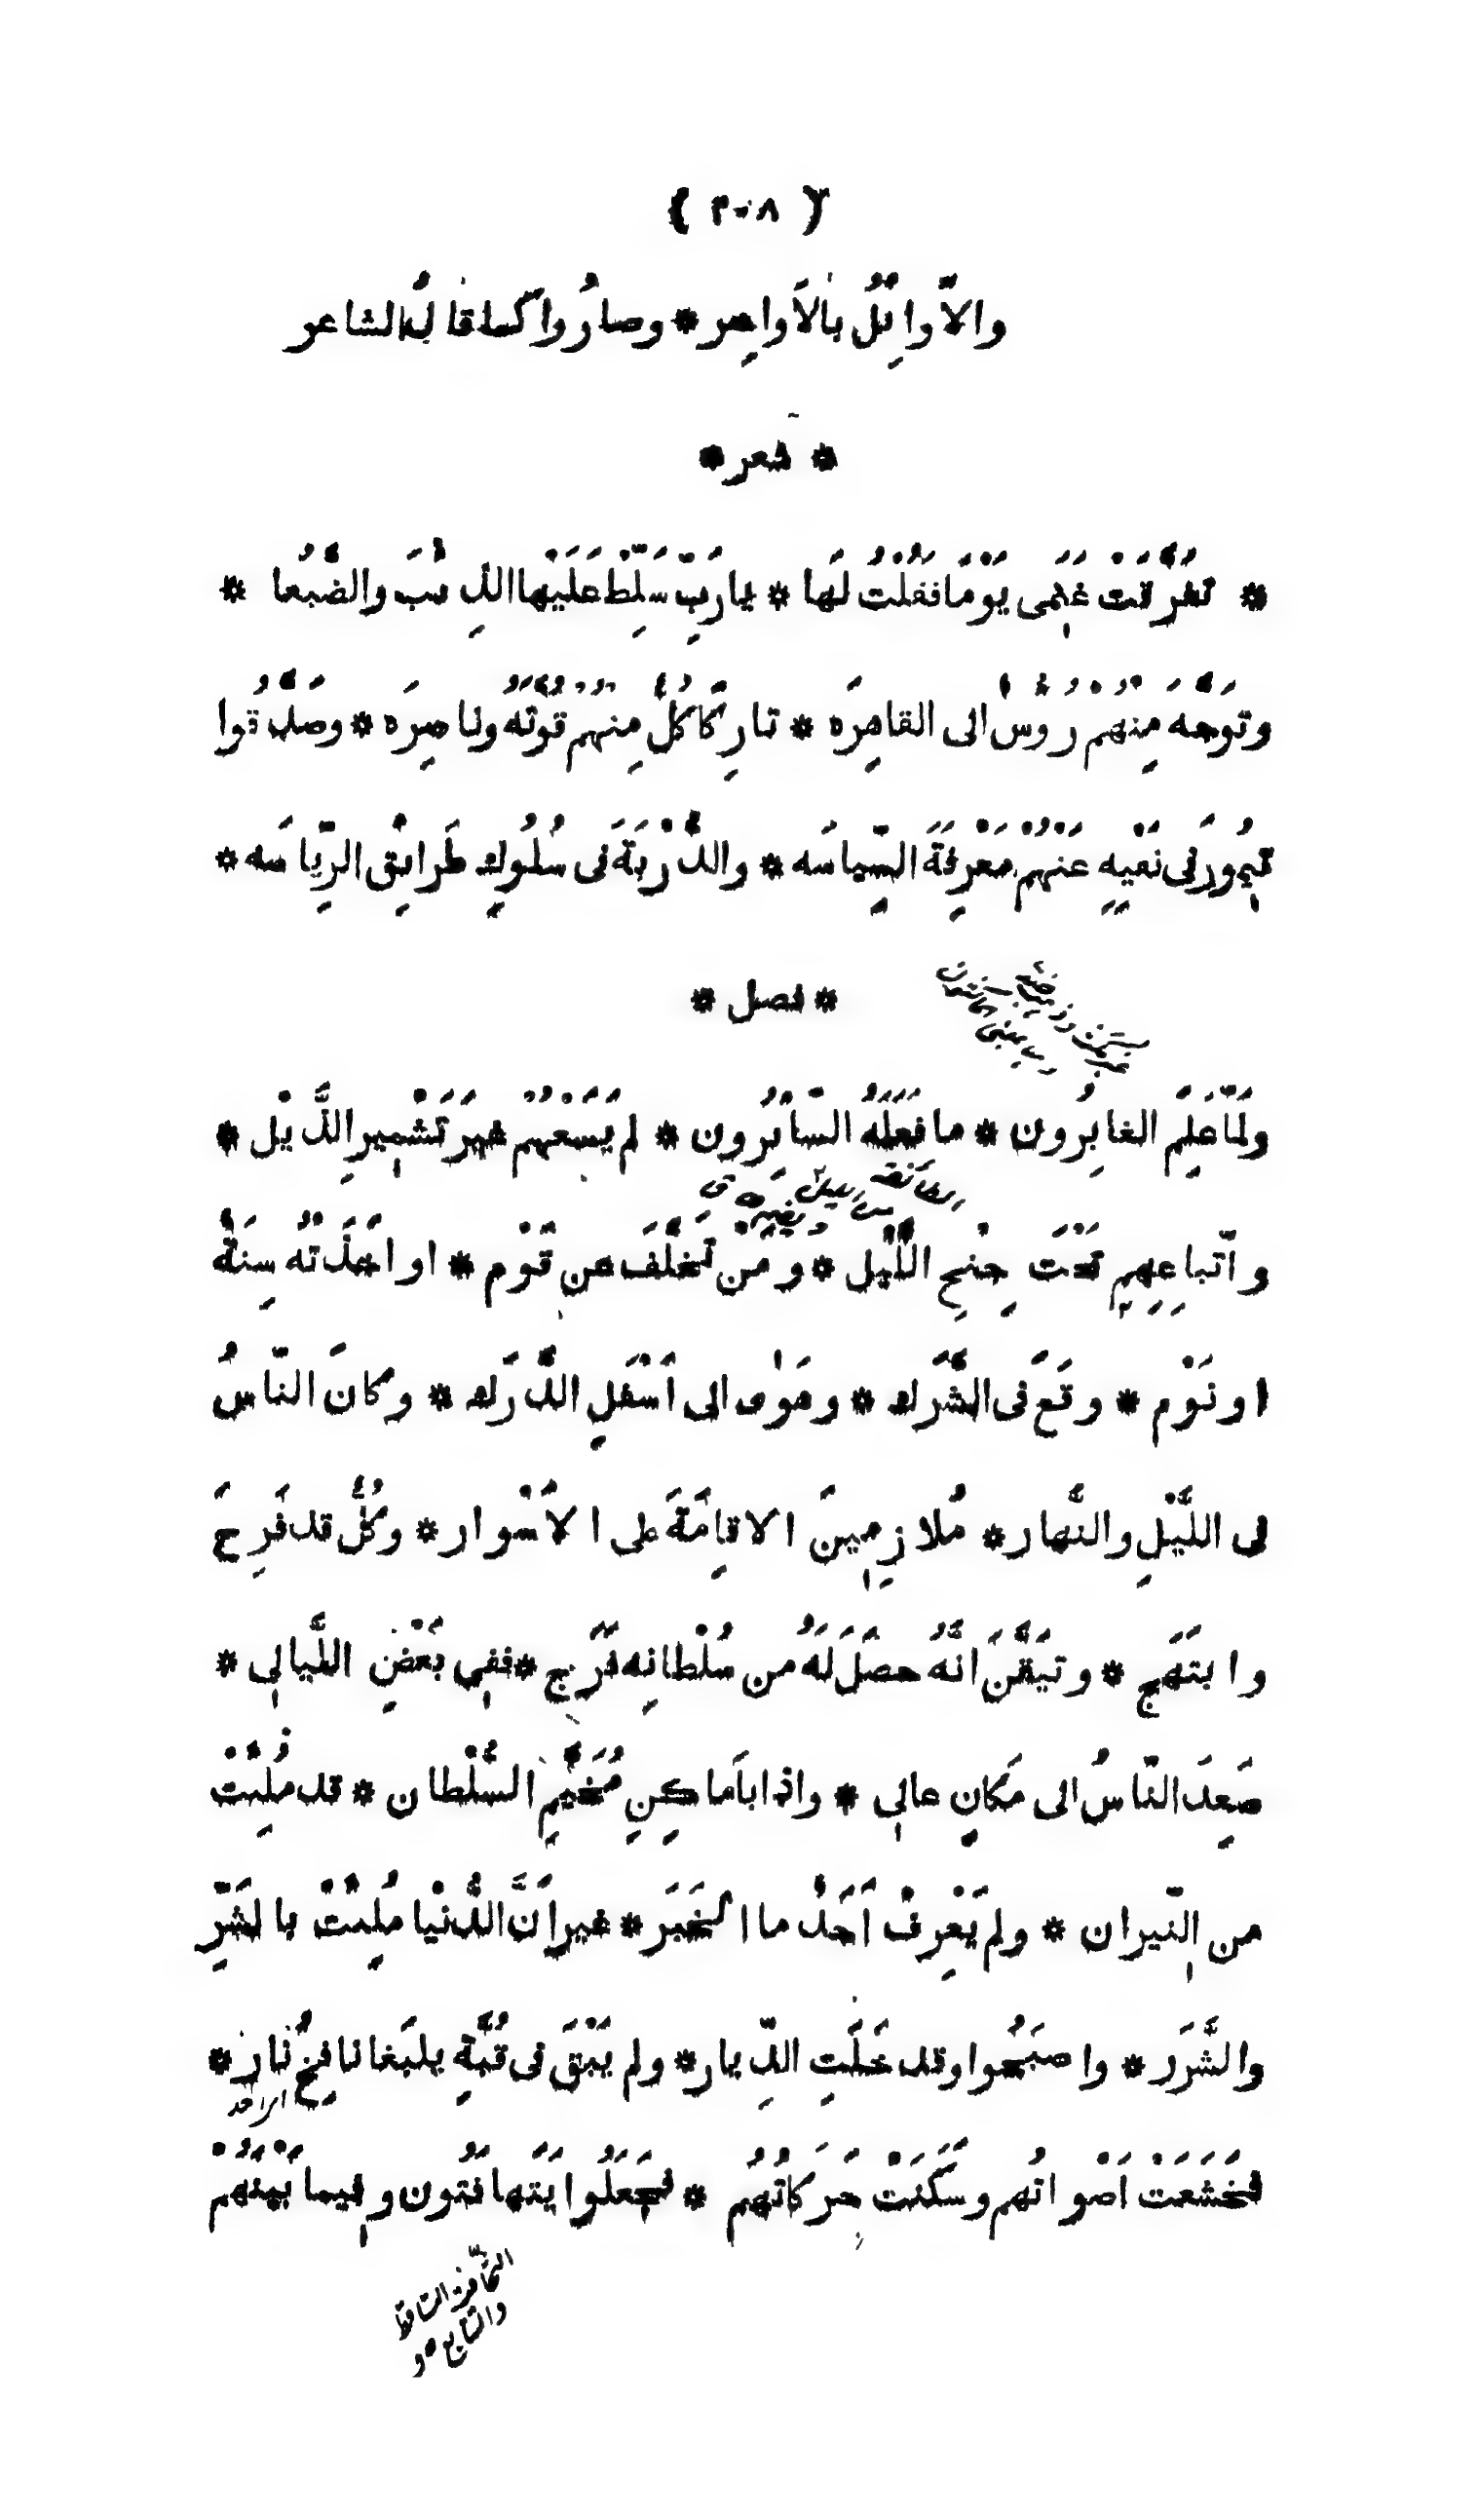 ( ٢٠٨ )
والاَّوائِلُ بالاَواخِر * وصارُوا كما قالَ الشاعر
* شعر *
* تفَرَّقَتْ غَنَمِى يَوْمًا فقُلْتُ لَها * يارَبِّ سَلِّطْ عَلَيْها الذِئبَ والضَّبُعا *
وتَوجَّهَ مِنْهُمْ رُؤُسٌ الى القاهِرَه * تارِكًا كُلٌّ مِنْهُمْ قُوَّتَهُ وناصِرَه * وصَدَّقُوا
تيمُورَ فى نَفْيِهِ عَنْهُمْ مَعْرِفَةَ السِّياسَه * والدُّرْبَةَ فى سُلُوكِ طَرائِقِ الرِّياسَه *
* فصل *
ولَمّا عَلِمَ الغابِرُون * ما فَعَلَهُ السّائِرُون * لم يَسَعْهُمْ غيرَ تَشْمِيرِ الذَّيْل *
واتّباعِهِم تَحْتَ جِنْحِ اللَّيْل * ومَنْ تَخَلَّفَ عن قَوْم * او اَخَذَتْهُ سِنَةٌ
او نَوْم * وقَعَ فى الشَّرَك * وهَوٰى الى اَسْفَلِ الدَّرَك * وكانَ الناسُ
فى اللَّيْلِ والنَّهار * مُلازِمِينَ الاقِامَةَ على الاَسْوار * وكُلٌّ قد فَرِحَ
وابتَهَج * وتيَقَّنَ انَّهُ حصَلَ لَهُ من سُلْطانِه فَرَج * ففِى بَعْضِ اللَّيالِى *
صَعِدَ النّاسُ الى مَكانٍ عالِى * واذا باَماكِنِ مُخَيَّمِ السُّلْطان * قد مُلِئَتْ
من النِّيران * ولم يَعْرِفْ اَحَدٌ ما الخَبَر * غير اَنَّ الدُّنْيا مُلِئَتْ بالشَرِّ
والشَّرَر * واصبَحُوا وقد خَلَتِ الدِّيار * ولم يَبْقَ فى قُبَّةِ يلبَغا نافِخُ نارٍ *
فخَشَعَتْ اَصْواتُهم وسَكَنَتْ حَرَكاتُهُم * فجَعَلُوا يَتَهافَتُون وفيما بَيْنَهُمْ